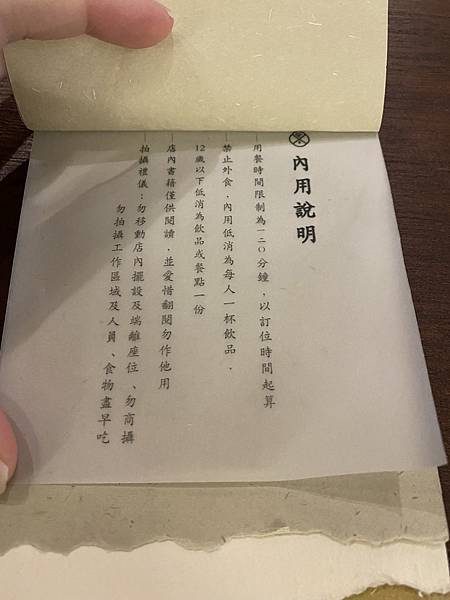 內用說明
—用餐時間限制為一二〇分鐘，以訂位時間起算
—禁止外食，內用低消為每人一杯飲品．
12歲以下低消為飲品或餐點一份
—店內書籍僅供閱讀，並愛惜翻閱勿作他用
—拍攝禮儀：勿移動店內擺設及端離座位、勿商攝
勿拍攝工作區域及人員、食物盡早吃